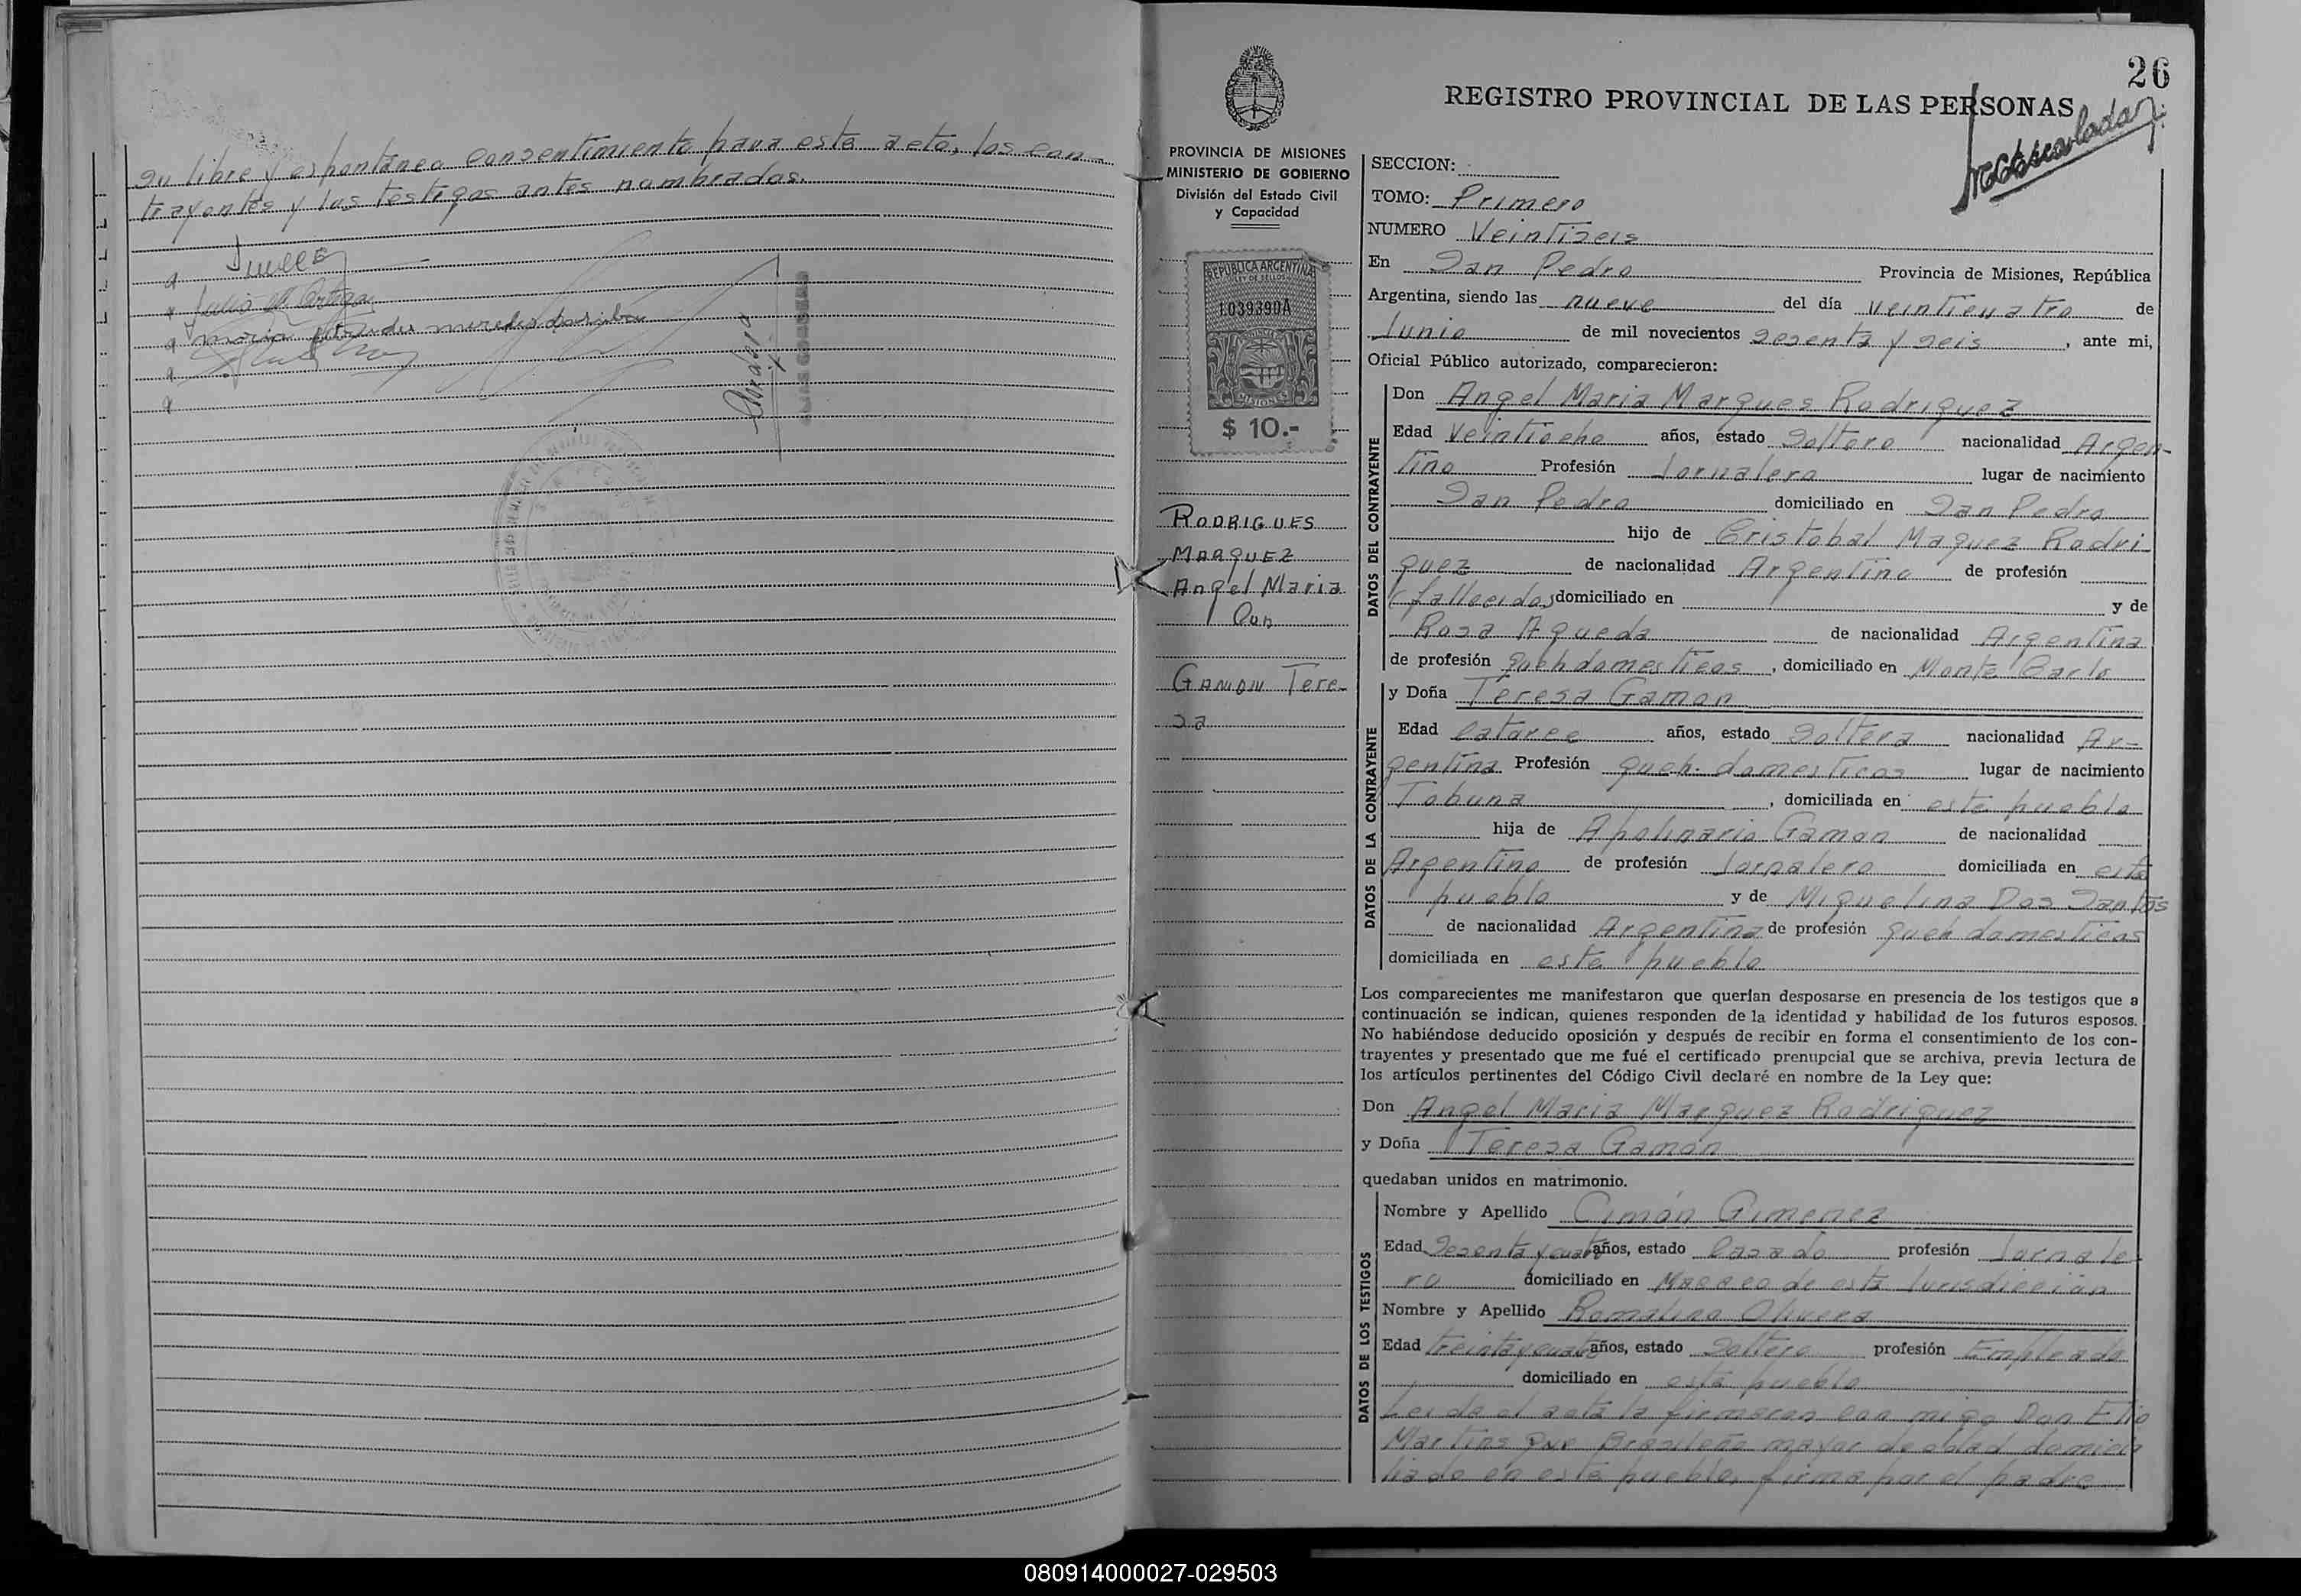 su libre y espontáneo consentimiento para este acto, los con-
trayentes y los testigos antes nombrados.
26
REGISTRO PROVINCIAL DE LAS PERSONAS
PROVINCIA DE MISIONES
MINISTERIO DE GOBIERNO
División del Estado Civil
y Capacidad
REPUBLICA ARGENTINA
LEY DE SELLOS
1039390A
MISIONES
$ 10.-
RODRIGUES
MARQUEZ
Angel Maria
Con
GAMON Tere-
sa
SECCION:
TOMO: Primero
NUMERO Veintiseis
En San Pedro Provincia de Misiones, República
Argentina, siendo las nueve del día veinticuatro de
Junio de mil novecientos sesenta y seis, ante mi,
Oficial Público autorizado, comparecieron:
DATOS DEL CONTRAYENTE
Don Angel Maria Marques Rodriguez
Edad Veintiocho años, estado Soltero nacionalidad Argen-
tino Profesión Jornalero lugar de nacimiento
San Pedro domiciliado en San Pedro
hijo de Cristobal Maquez Rodri
guez de nacionalidad Argentino de profesión
(fallecido) domiciliado en y de
Rosa Agueda de nacionalidad Argentina
de profesión queh domesticos, domiciliado en Monte Carlo
DATOS DE LA CONTRAYENTE
y Doña Teresa Gamon
Edad catorce años, estado Soltera nacionalidad Ar-
gentina Profesión queh. domesticos lugar de nacimiento
Tobuna, domiciliada en este pueblo
hija de Apolinario Gamon de nacionalidad
Argentino de profesión Jornalero domiciliada en este
pueblo y de Miguelina Dos Santos
de nacionalidad Argentina de profesión queh domesticos
domiciliada en este pueblo
Los comparecientes me manifestaron que querían desposarse en presencia de los testigos que a
continuación se indican, quienes responden de la identidad y habilidad de los futuros esposos.
No habiéndose deducido oposición y después de recibir en forma el consentimiento de los con-
trayentes y presentado que me fué el certificado prenupcial que se archiva, previa lectura de
los artículos pertinentes del Código Civil declaré en nombre de la Ley que:
Don Angel Maria Marquez Rodriguez
y Doña Teresa Gamón
quedaban unidos en matrimonio.
DATOS DE LOS TESTIGOS
Nombre y Apellido Cimón Gimenez
Edad Sesenta y cuatro años, estado Casado profesión Jornale-
ro domiciliado en de esta Jurisdicción
Nombre y Apellido Romalino Olivera
Edad treinta y cuatro años, estado Soltero profesión Empleado
domiciliado en este pueblo
Leido el acta la firmaron con migo Don Elio
Martins que Brasileño mayor de edad domici
liado en este pueblo, firma por el padre
080914000027-029503